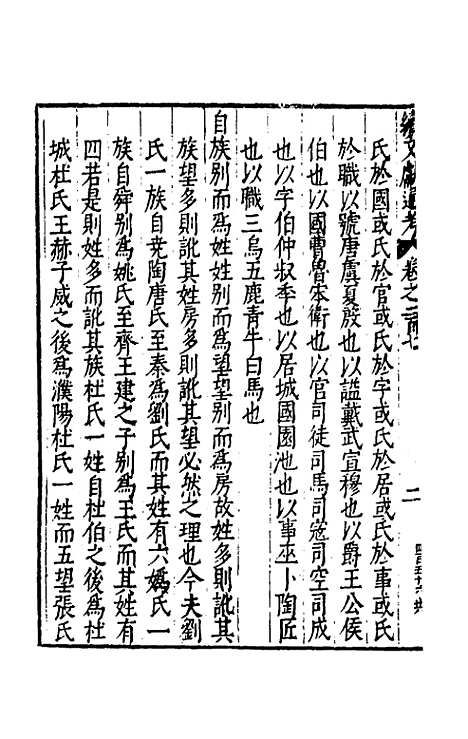 續文獻通考 卷之二百七 二
氏於國或氏於官或氏於字或氏於居或氏於事或氏
於職以號唐虞夏殷也以謚戴武宣穆也以爵王公侯
伯也以國曹魯宋衛也以官司徒司馬司寇司空司成
也以字伯仲叔季也以居城國園池也以事巫卜陶匠
也以職三烏五鹿青牛白馬也
自族别而爲姓姓别而爲望望别而爲房故姓多則訛其
族望多則訛其姓房多則訛其望必然之理也今夫劉
氏一族自堯陶唐氏至秦爲劉氏而其姓有六嬀氏一
族自舜别爲姚氏至齊王建之子别爲王氏而其姓有
四若是則姓多而訛其族杜氏一姓自杜伯之後爲杜
城杜氏王赫子威之後爲濮陽杜氏一姓而五望張氏